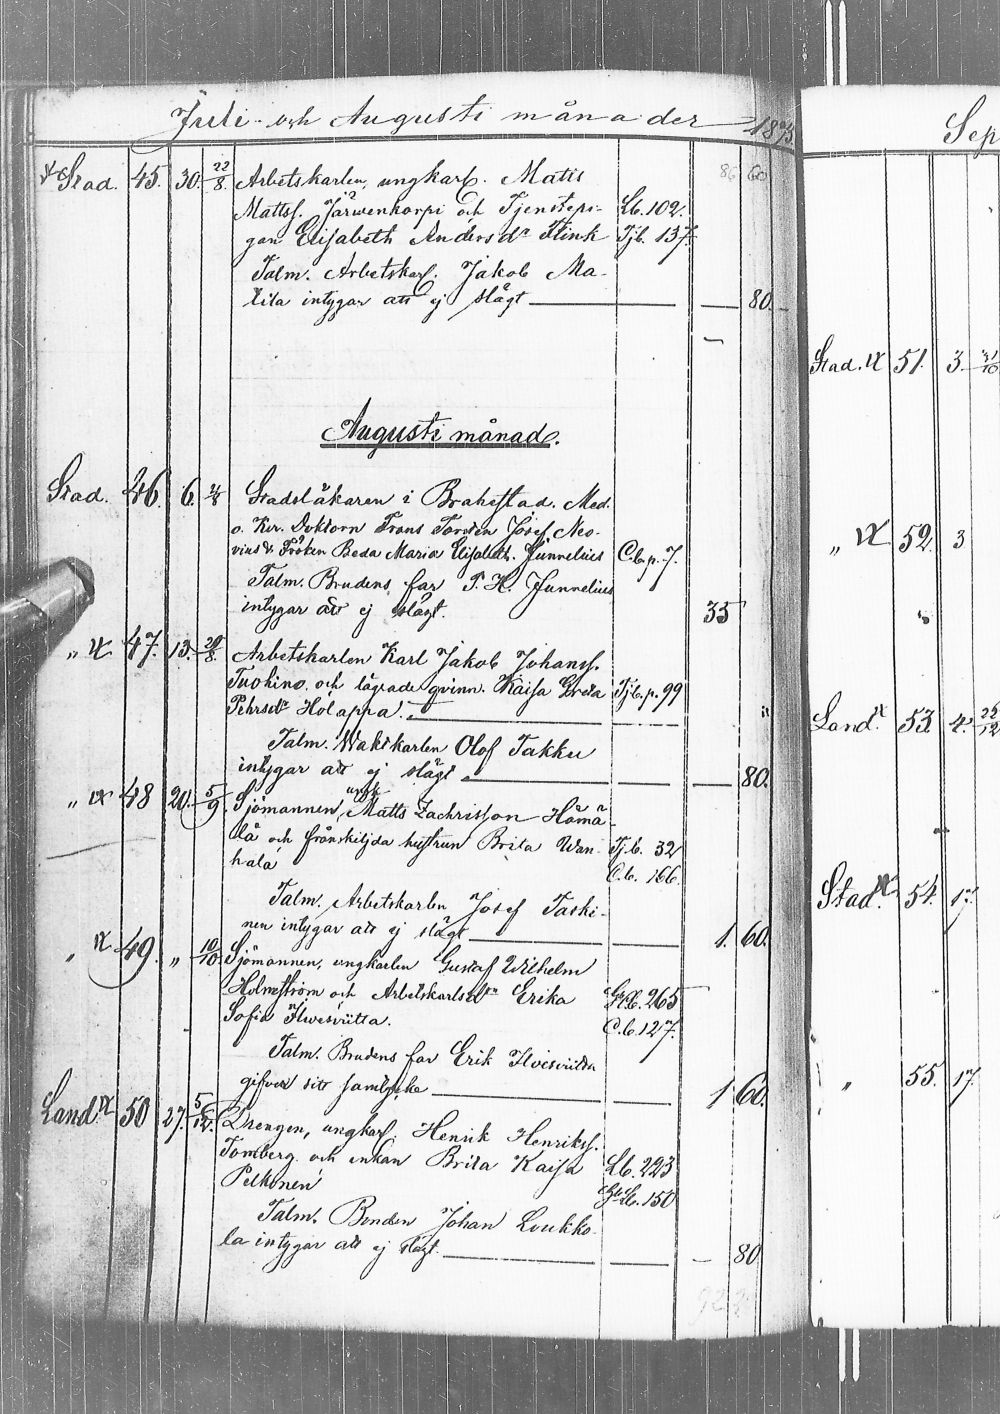 Juli och Augusti månader 1873.
Stad. 45. 30. 22/8. Arbetskarlen, ungkarl. Matts 86 60
Mattss. Järwenkorpi och Tjenstepi- Lb. 102.
gan Elisabeth Andersdr Flink Tjb. 137.
Talm. Arbetskarl. Jakob Ma-
tila intygar att ej slägt — — 80.
Augusti månad.
Stad. 46. 6. Stadsläkaren i Brahestad. Med.
o. Kir. Doktorn Frans Torsten Josef Neo-
vius & Fröken Beda Maria Elisabeth. Junnelius C.b.p. 7.
Talm. Brudens far P. H. Junnelius
intygar att ej slägt. 35
„ 47. 13. 29/8. Arbetskarlen Karl Jakob Johanss.
Tuohino och lägrade qvinn. Kaisa Greta Tjb.p. 99
Pehrsdr Holappa.
Talm. Waktkarlen Olof Takku
intygar att ej slägt — — 80.
„ 48 20. 5/9. Sjömannen, ungk. Matts Zachrisson Hämä-
lä och frånskiljda hustrun Brita Wan- Tj.b. 32
hala C.b. 166.
Talm. Arbetskarlen Josef Taski-
nen intygar att ej slägt — 1. 60.
„ 49. „ 10/10. Sjömannen, ungkarlen Gustaf Wilhelm
Holmström och Arbetskarlsdr Erika 265
Sofia Ilwesviitta. C.b. 127.
Talm. Brudens far Erik Ilvesviitta
gifver sitt samtycke — 1 60.
Land. 50 27. 5/12. Drengen, ungkarl. Henrik Henrikss.
Tomberg och enkan Brita Kaisa Lb. 223
Pelkonen 150
Talm. Bonden Johan Loukko-
la intygar att ej slägt. — — 80.
Sep
Stad. 51. 3. 31/10
„ 52. 3
Land. 53. 4. 25/12
Stad. 54. 17.
„ 55. 17.